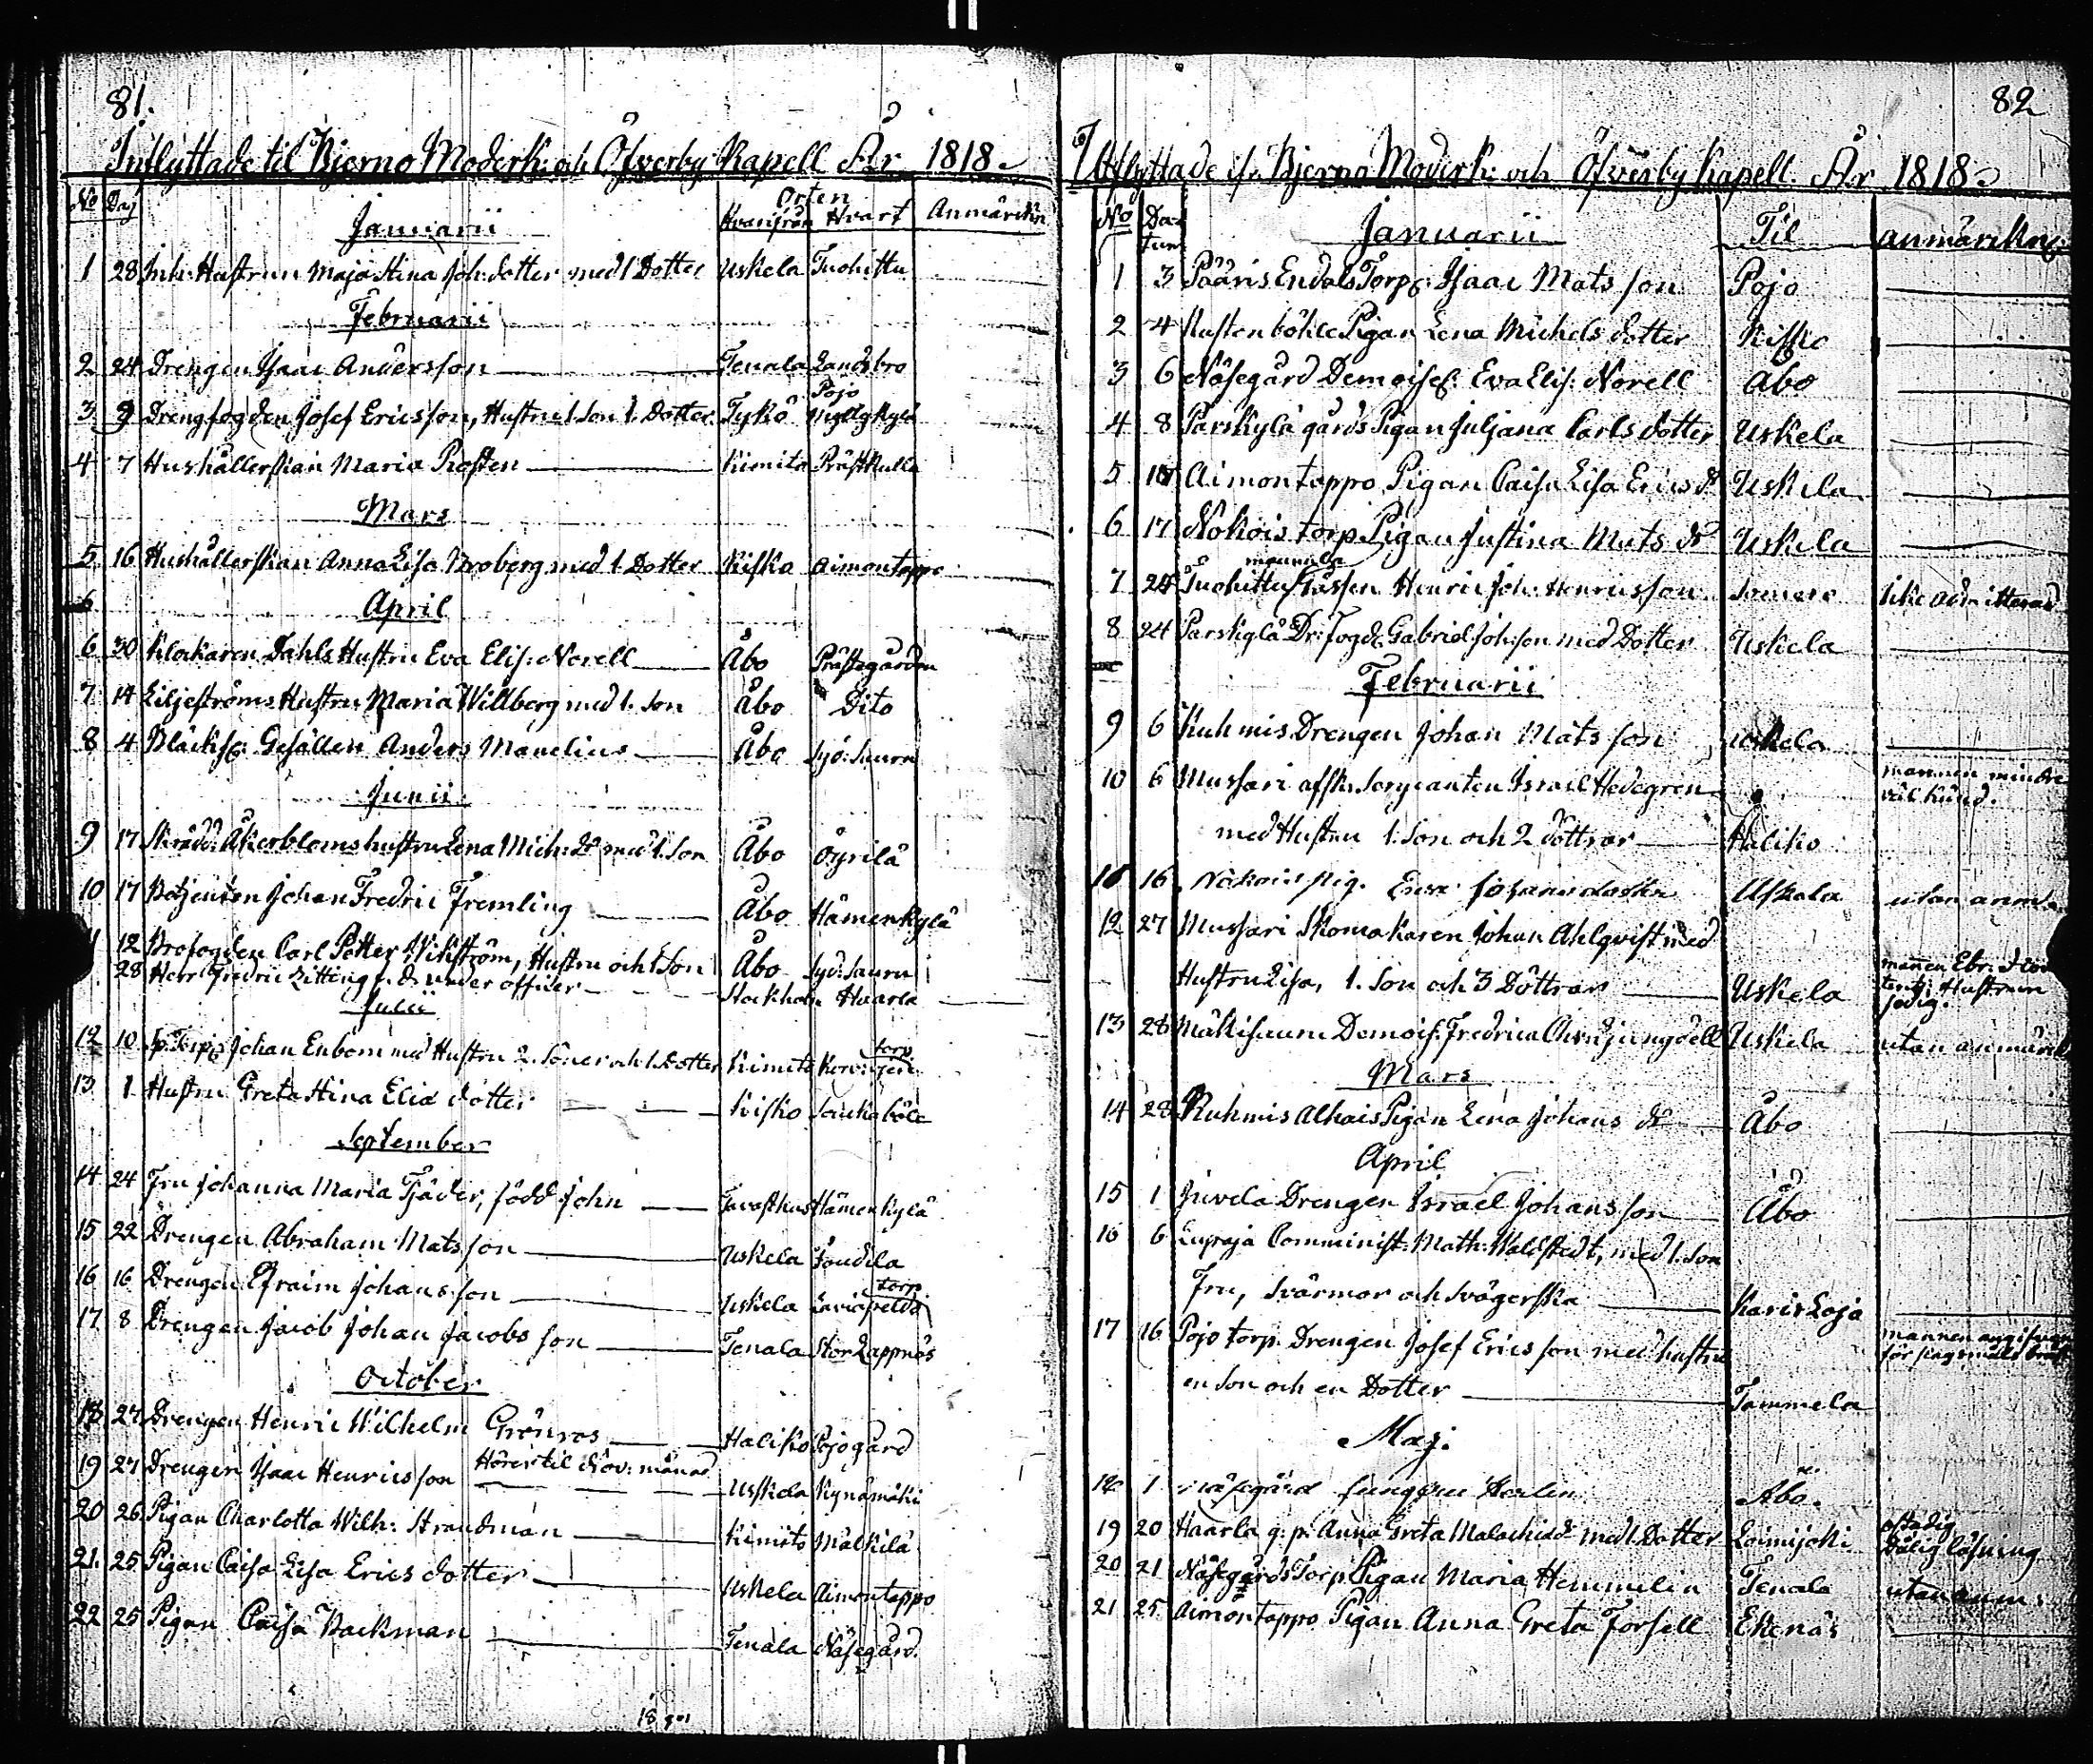 81.
Inflyttade til Bjerno Moderk: och Öfverby Kapell År 1818.
No Dag Orten
Januarii Hvarifrån Hvart Anmärckn
1 28 Inh: Hustrun Maja Stina Joh: dotter med 1 Dotter Uskela Tuohittu
Februarii
2 24 Drengen Isaac Andersson Tenala Landsbro
Pojo
3 9 Drengfogden Josef Ericsson, Hustru 1. Son 1. Dotter Tykö
4 7 Hushållerskan Maria Rosten Kimito Prästkulla
Mars
5 16 Hushållerskan Anna Lisa Broberg med 1. Dotter Kisko Aimontappo
6
April
6 30 Klockaren Dahls Hustru Eva Elis: Norell Åbo Prästegården
7 14 Liljeströms Hustru Maria Willberg med 1. Son Åbo Dito
8 4 Gesällen Anders Manelius Åbo
Junii
9 17 Skrädd: Åkerbloms hustru Lena Mich: dr med 1. Son Åbo
10 17 Betjenten Johan Fredric Fremling Åbo Hämenkylä
11 12 Brofogden Carl Petter Wikström, Hustru och 1 Son Åbo
28 Herr Fredric Zitting f. d. under officer Stockholm Haarla
Julii
torp
12 10 Johan Enbom med Hustru 2. Söner och 1. Dotter Kimito
13 1 Hustru Greta Stina Elia dotter Kisko
September
14 24 Fru Johanna Maria Tjäder, född John Tavasthus Hämenkylä
15 22 Drengen Abraham Matsson Uskela
torp
16 16 Drengen Efraim Johansson Uskela
17 8 Drengen Jacob Johan Jacobsson Tenala Stor Lappnäs
October
18 27 Drengen Henric Wilhelm Grönros Haliko Pojogård
19 27 Drengen Isaac Henricsson Hörer til Nov: månad Uskela Kynämäki
20 26 Pigan Charlotta Wilh: Strandman Kimito Mälkilä
21. 25 Pigan Caisa Lisa Erics dotter Uskela Aimontappo
22 25 Pigan Caisa Backman Tenala Näsegård.
82
Utflyttade if: Bjerno Moderk: och Öfverby Kapell. År 1818.
No Datum Januarii Til anmärckn:
1 3 Pääris Endals Torp: Isaac Matsson Pojo
2 4 Pigan Lena Michels dotter Kisko
3 6 Näsegård Demoisell: Eva Elis: Norell Åbo
4 8 Parskylä gårds Pigan Juljana Carls dotter Uskela
5 Aimontappo Pigan Caisa Lisa Erics dr Uskela
6 17 Nokois torp Pigan Justina Mats dr Uskela
7 24 Tuohittu Henric Joh: Henricsson Somero
8 24 Parskylä Dr: Fogd: Gabriel Joh:son med Dotter Uskela
Februarii
9 6 Kuhmis Drengen Johan Matsson Uskela
10 6 Mussari afsk: Sergeanten Israel Hedegren mannen mindre väl kund.
med Hustru 1. Son och 2 döttrar Haliko
16 Nokois pig. Uskela utan anm
12 27 Mussari Skomakaren Johan Ahlqvist med
Hustru Lisa, 1. Son och 3 Döttrar Uskela
13 28 Demois: Fredrica Ljungdell Uskela utan anmärk
Mars
14 28 Kuhmis Alhais Pigan Lena Johans dr Åbo
April
15 1 Juvela Drengen Israel Johansson Åbo
16 6 Comminist: Math: Waldstedt, med 1. Son
Fru, Svärmor och Svägerska Karis Loja
17 16 Pojo torp. Drengen Josef Ericsson med hustru
en Son och en Dotter Tammela
Maj.
18 1 Näsegård Åbo.
19 20 Haarla q: p: Anna Greta Malachid: med 1. Dotter Loimijoki ostadig Dålig läsning
20 21 Näsegårds Torp Pigan Maria Hemmelin Tenala utan anm:
21 25 Aimontappo Pigan Anna Greta Forsell Ekenäs